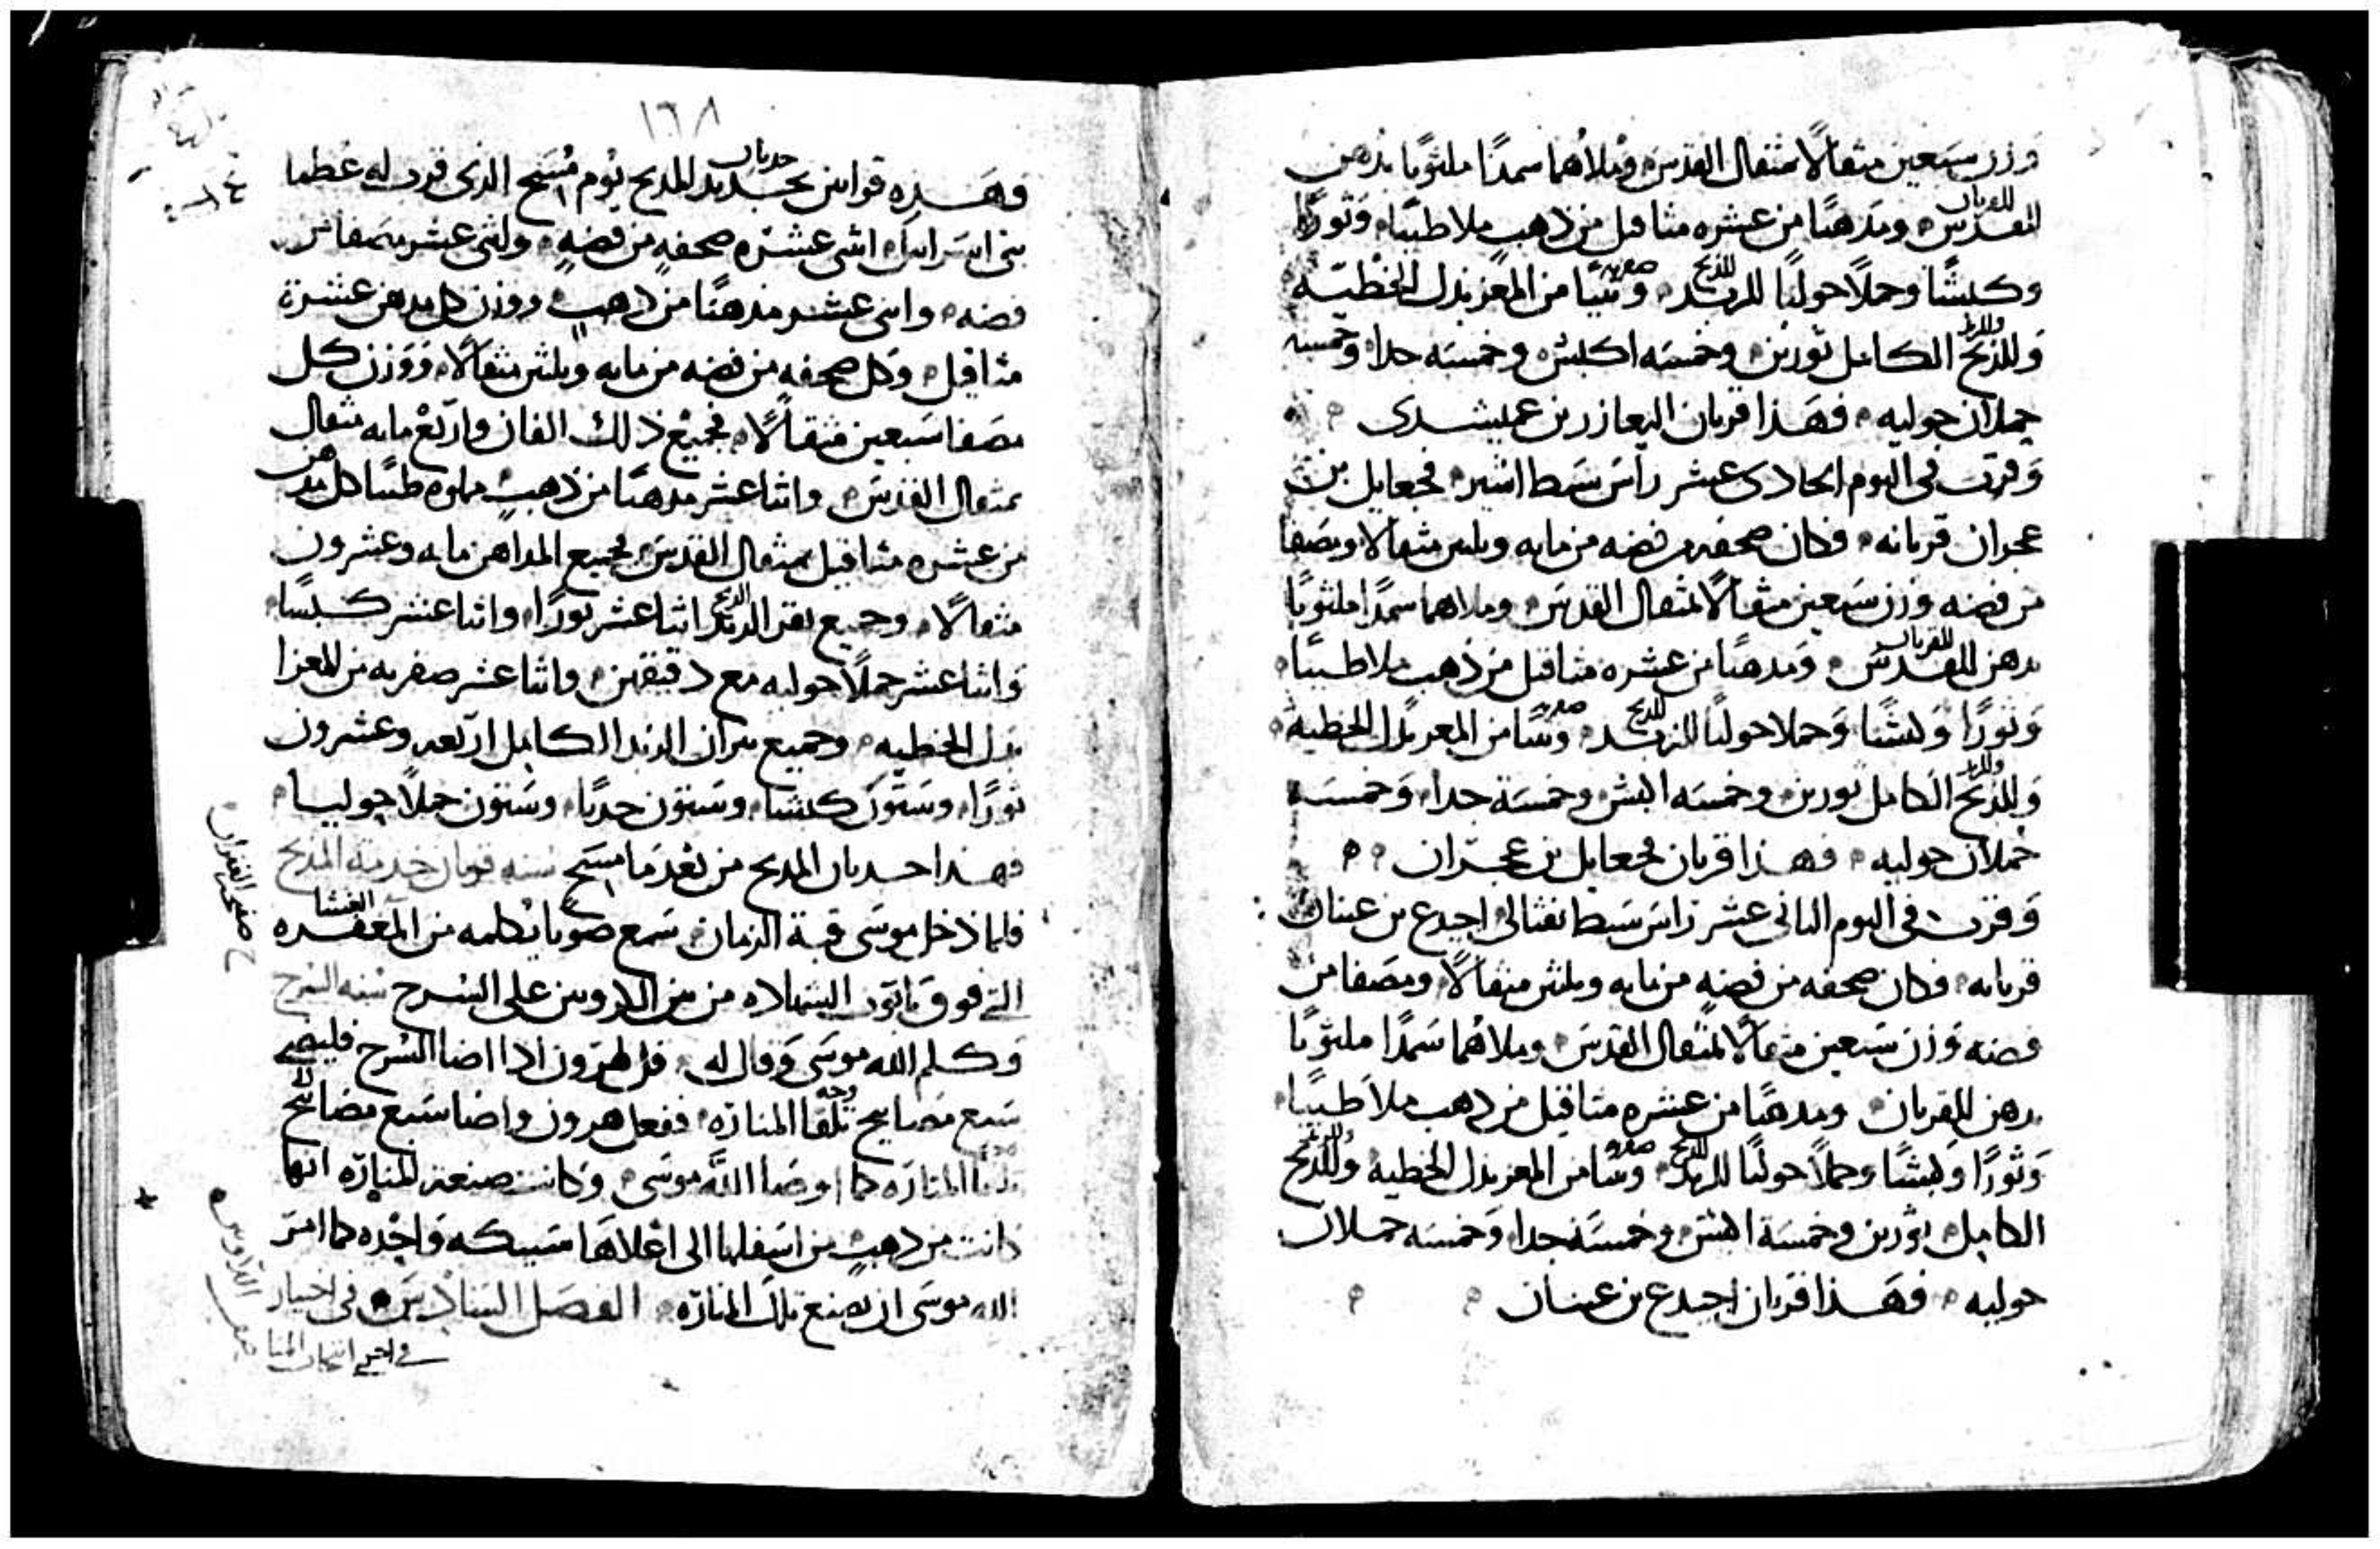 وزن سبعين مثقالًا بمثقال القدس وملاهما سمدًا ملثوتًا بدهن
للقربان
للقدس ومدهنًا من عشره مثاقيل من ذهب ملاطيبًا وثورًا
وكبشًا وحملًا حوليًا وثنيًا من المعز بدل الخطيه
للذبح
وللذبح الكامل ثورين وخمسه اكبش وخمسه جدا وخمسه
حملان حوليه فهذا قربان اليعازر بن عميشدى
وقرب فى اليوم الحادى عشر راس سبط اشير فجعايل بن
عجران قربانه فكان صحفه من فضه من مايه وثلثين مثقالا ومصفا
من فضه وزن سبعين مثقالًا بمثقال القدس وملاهما سمدًا ملثوتًا
للقربان
بدهن للقدس ومدهنًا من عشره مثاقيل من ذهب ملاطيبًا
وثورًا وكبشًا وحملا حوليًا وثنيًا من المعز بدل الخطيه
للذبح
وللذبح الكامل ثورين وخمسه اكبش وخمسة جدا وخمسه
حملان حوليه فهذا قربان فجعايل بن عجران
وقرب فى اليوم الثانى عشر راس سبط نفثالى اجيدع بن عينان
قربانه فكان صحفه من فضه من مايه وثلثين مثقالًا ومصفا من
فضه وزن سبعين مثقالًا بمثقال القدس وملاهما سمدًا ملثوتًا
بدهن للقربان ومدهنًا من عشره مثاقيل من ذهب ملاطيبًا
وثورًا وكبشًا وحملًا حوليًا وثنيًا من المعز بدل الخطيه وللذبح
للذبح
الكامل ثورين وخمسة اكبش وخمسة جدا وخمسه حملان
حوليه فهذا قربان اجيدع بن عينان
١٦٨
حدثان
فهذه قرابين تجديد المذبح يوم مُسح الذى قرب له عظما
بنى اسرايل اثنى عشره صحفه من فضه واثنى عشر مصفا من
فضه واثنى عشر مدهنًا من ذهب ووزن كل مدهن عشرة
مثاقيل وكل صحفه من فضه من مايه وثلثين مثقالًا ووزن كل
مصفا سبعين مثقالًا فجميع ذلك الفان واربع مايه مثقال
بمثقال القدس واثنا عشر مدهنًا من ذهب مملوه طيبًا كل مدهن
من عشره مثاقيل بمثقال القدس فجميع المداهن مايه وعشرون
الذبح
مثقالًا وجميع بقر اثنا عشر ثورًا واثنا عشر كبشًا
واثنا عشر حملًا حوليه مع دقيقهن واثنا عشر صفريه من المعزا
بدل الخطيه وجميع ثيران الكامل اربعه وعشرون
ثورًا وستون كبشا وستون جديًا وستون حملًا حوليا
فهذا حدثان المذبح من بعد ما مسح سنه قربان خدمة المذبح
الغشا
فلما دخل موسى قبة الزمان سمع صوتا يكلمه من المغفره
التى فوق تابوت الشهاده من بين الكاروبين على السرح سنه السرح
وكلم الله موسى وقال له قل لهرون اذا اضا السرح فليضى
وجه
سبع مصابيح تلقا المناره ففعل هرون واضا سبع مصابيح
تلقا المناره كما اوصا الله موسى وكانت صنعة المناره انها
كانت من ذهب من اسفلها الى اعلاها سبيكه واحده كما امر
الله موسى ان يصنع تلك المناره الفصل السادس فى اختيار